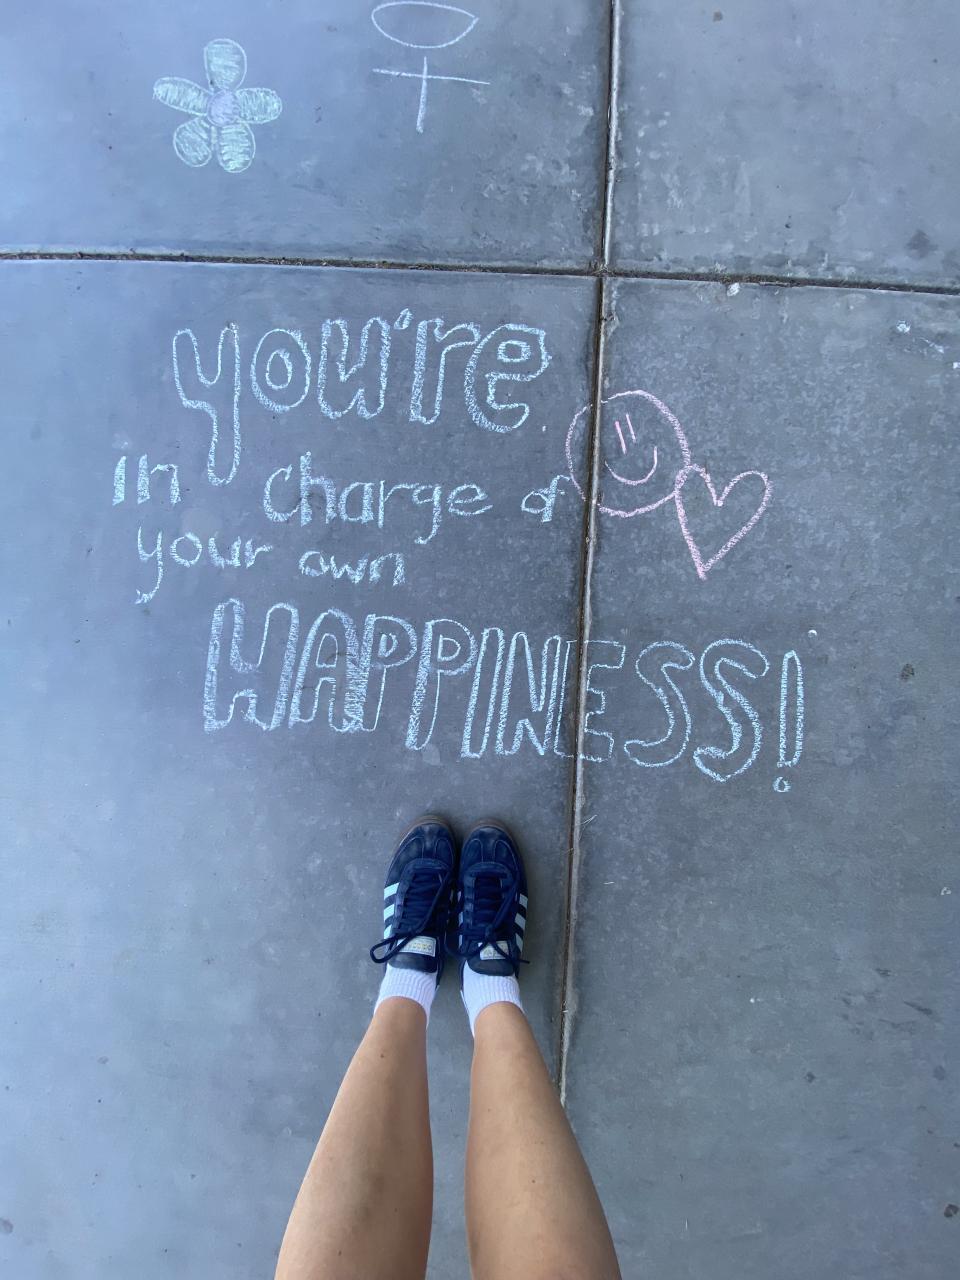 you're
In charge of
your own
HAPPINESS!